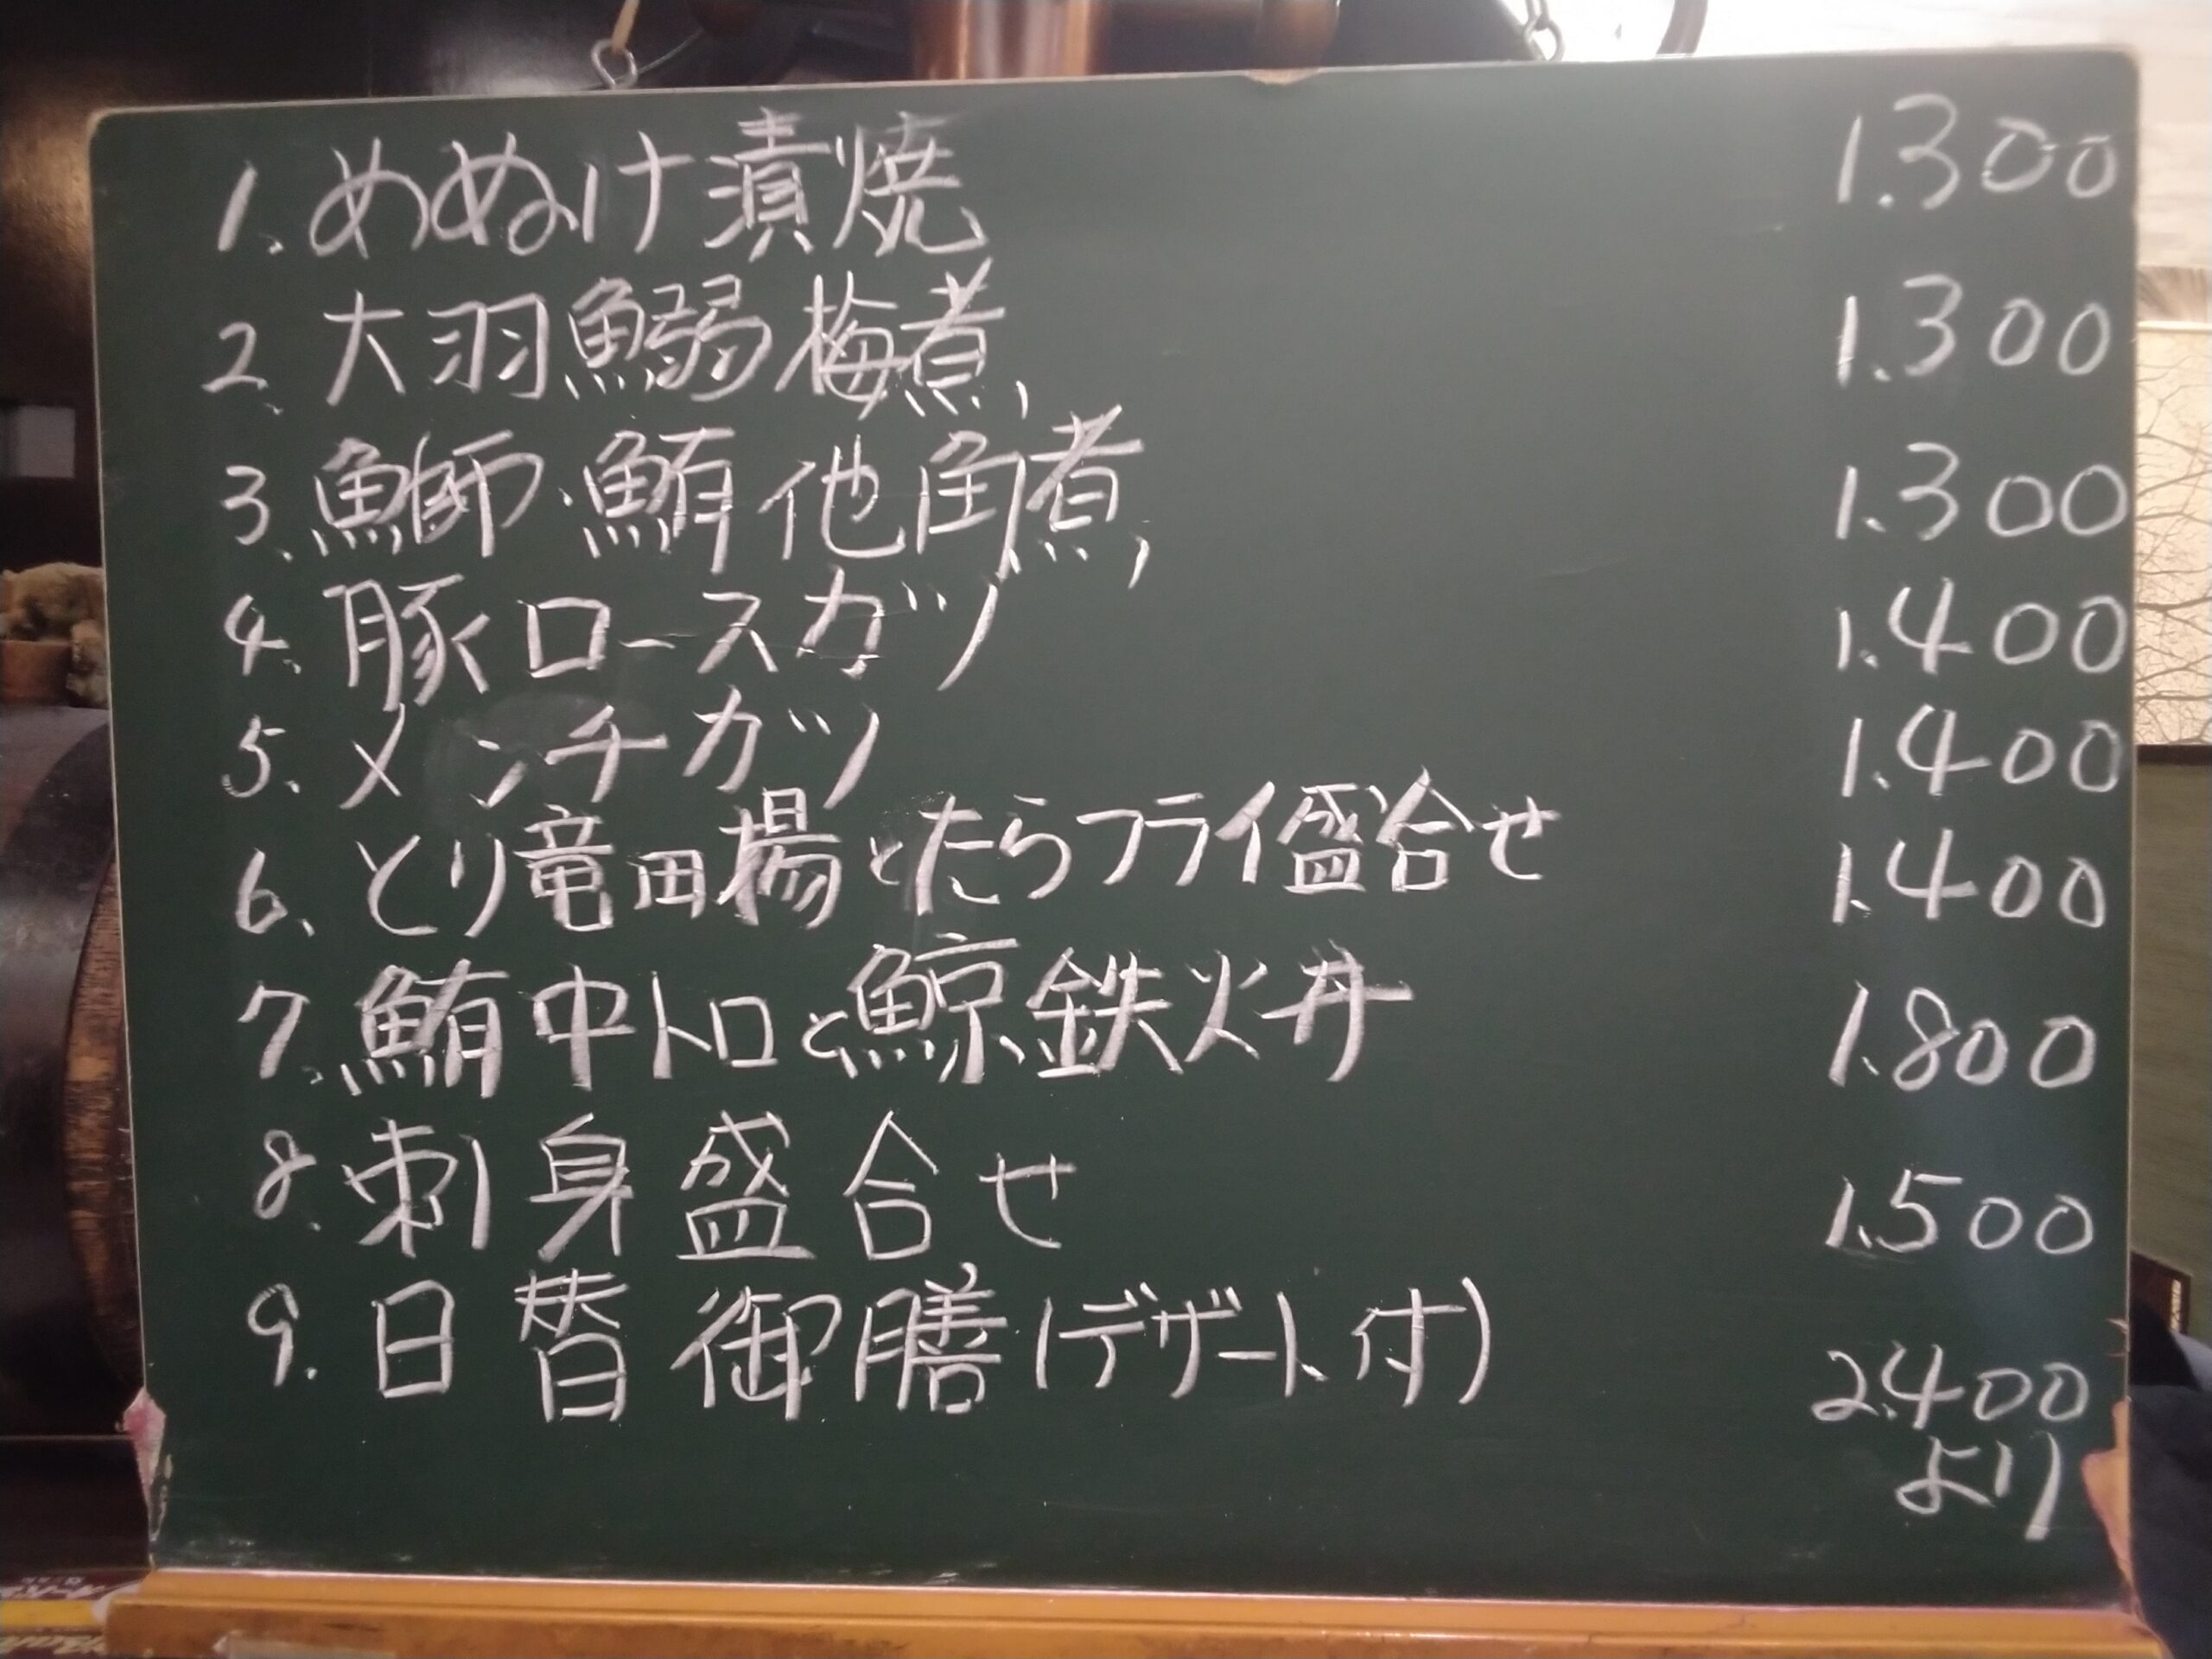 1. めぬけ漬焼 1.300
2. 大羽鰯梅煮 1.300
3. 鰤・鮪他角煮 1.300
4. 豚ロースカツ 1.400
5. メンチカツ 1.400
6. とり竜田揚とたらフライ盛合せ 1.400
7. 鮪中トロと鯨鉄火丼 1.800
8. 刺身盛合せ 1.500
9. 日替御膳(デザート付) 2.400
より